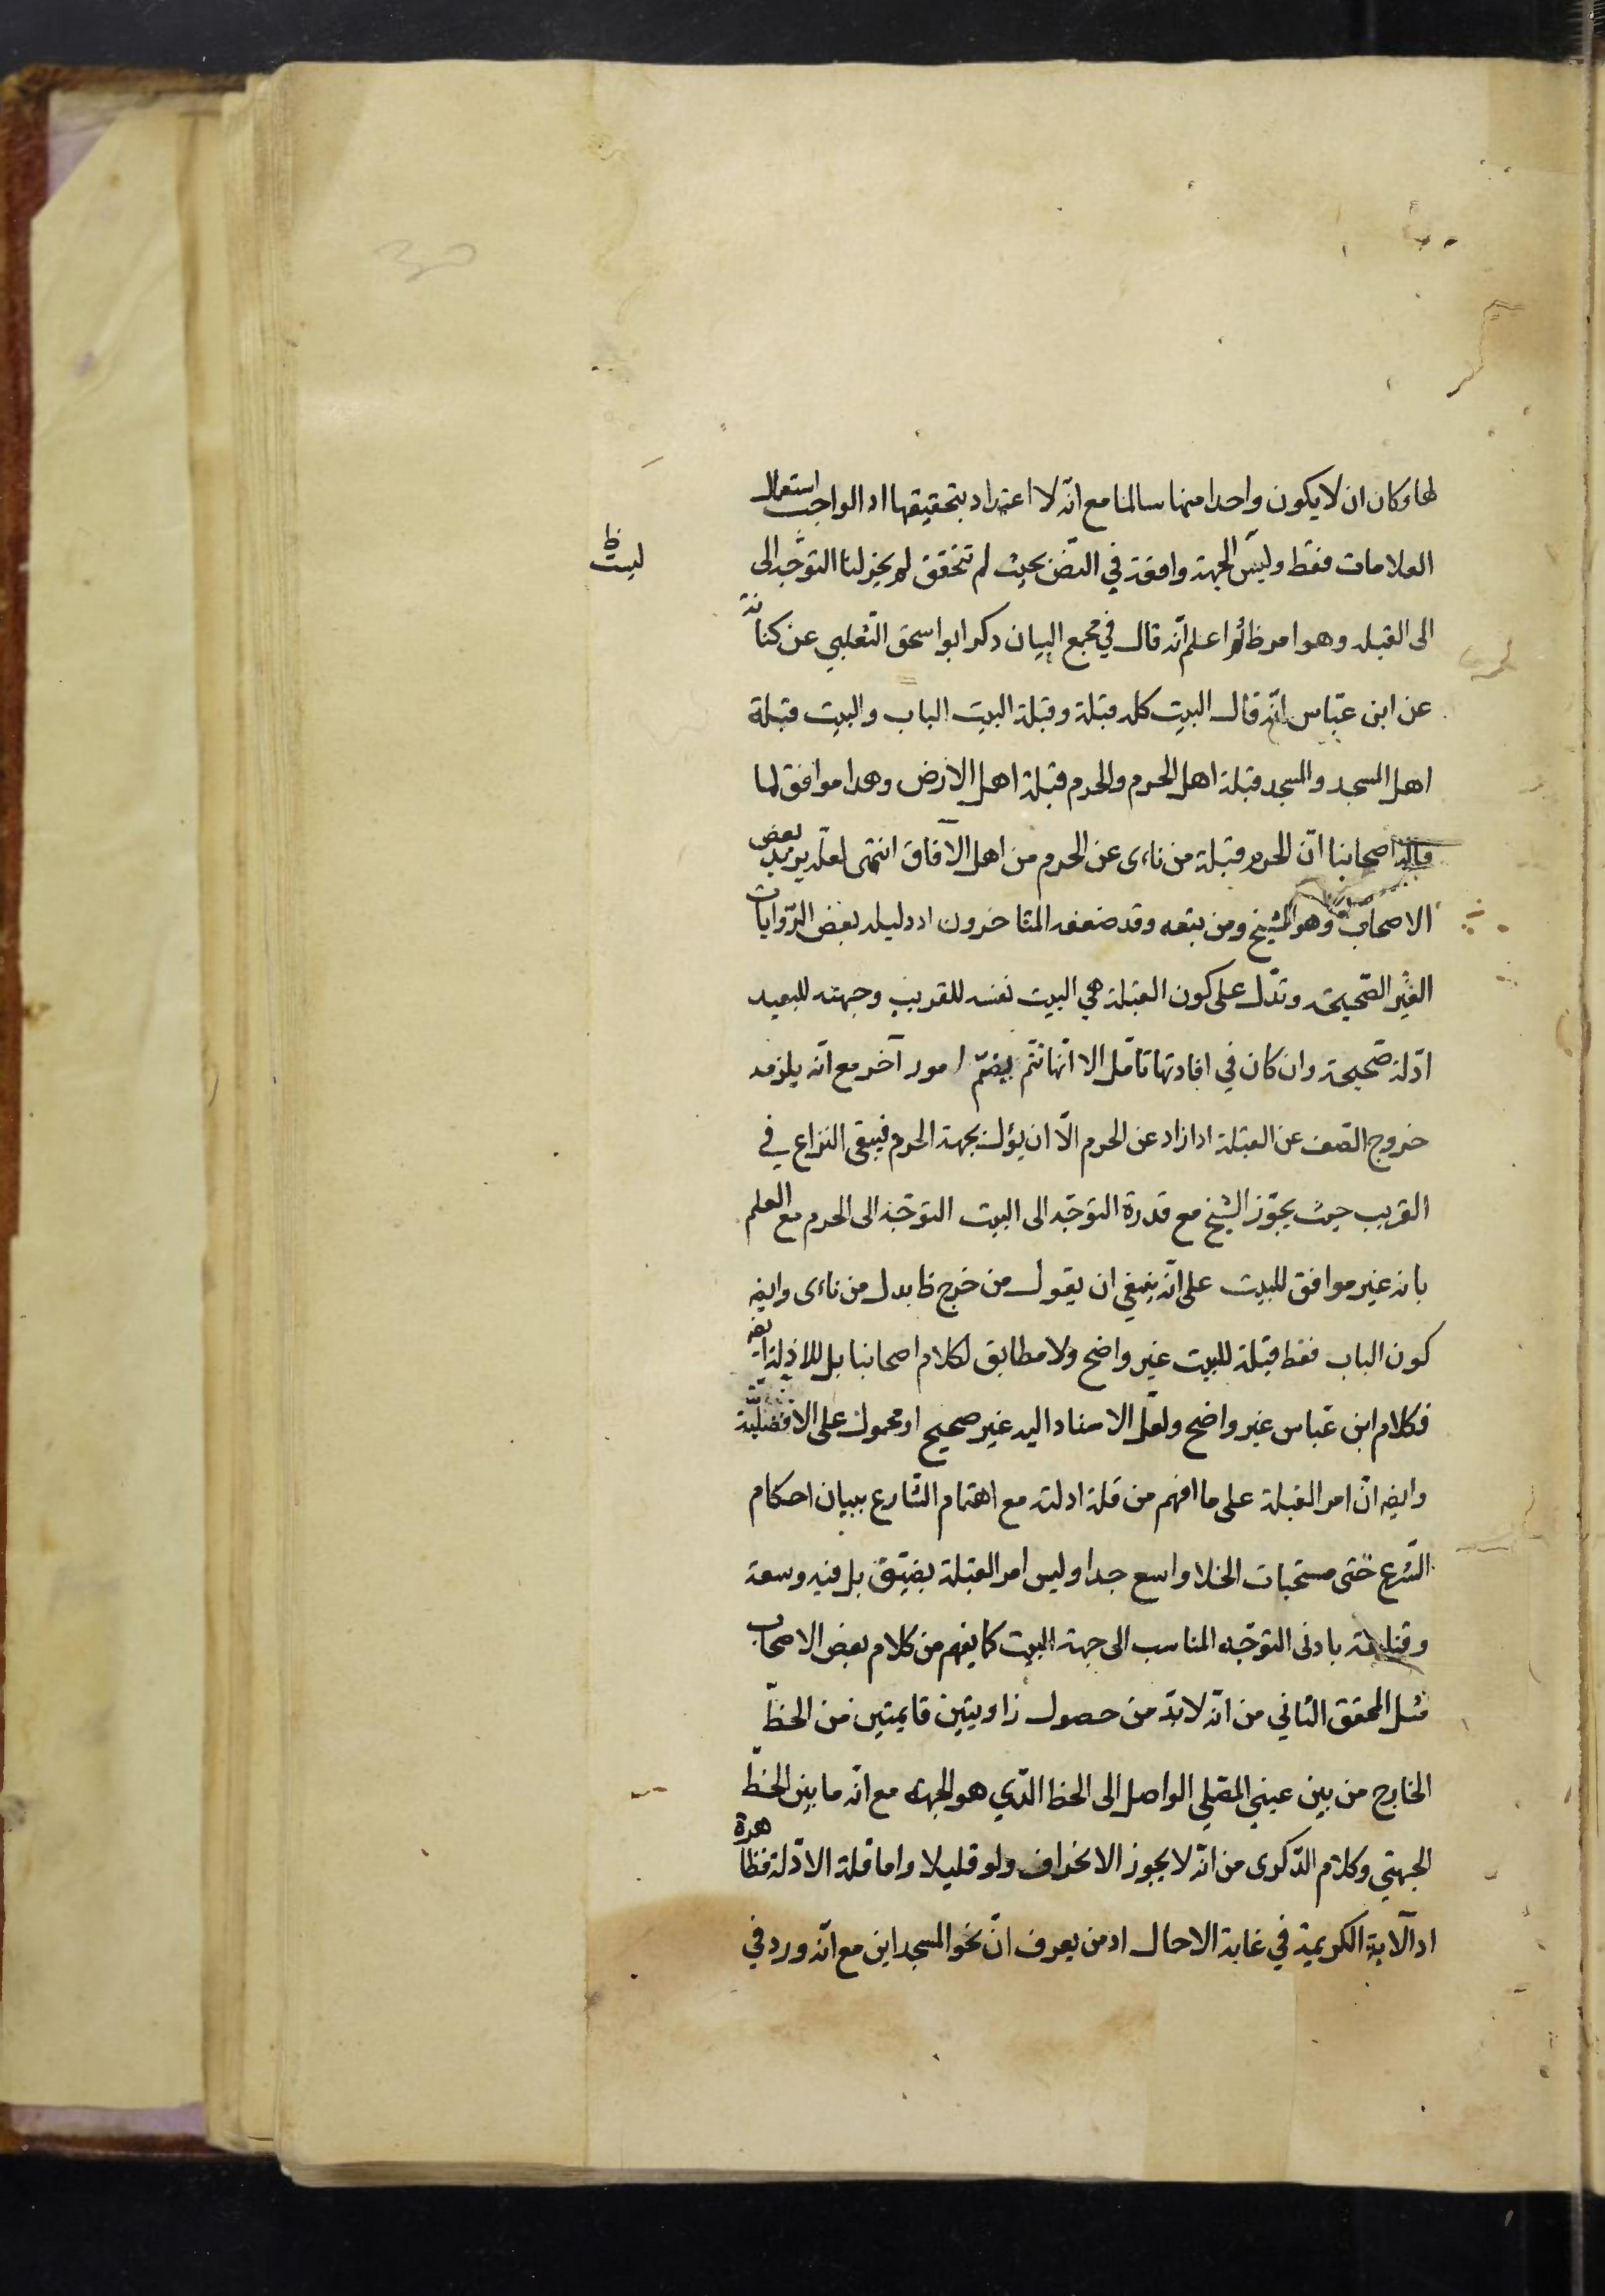 لها وكان ان لا يكون واحدا منها سالما مع انّه لا اعتداد بتحقيقها اذ الواجب استعمال
العلامات فقط وليس الجهة واقعة في النّص بحيث لم تتحقق لم يجز لنا التوجّه الى
ليست ظ
الى القبله وهو امر ظ ثم اعلم انّه قال في مجمع البيان ذكر ابو اسحق الثعلبي عن كنانة
عن ابن عبّاس انّه قال البيت كله قبلة وقبلة البيت الباب والبيت قبلة
اهل المسجد والمسجد قبلة اهل الحرم والحرم قبلة اهل الارض وهذا موافق لما
قاله اصحابنا انّ الحرم قبلة من ناءى عن الحرم من اهل الآفاق انتهى لعلّه يريد بعض
الاصحاب وهو الشيخ ومن تبعه وقد ضعفه المتاخرون اذ دليله بعض الرّوايات
الغير الصّحيحة وتدلّ على كون القبلة هي البيت نفسه للقريب وجهته للبعيد
ادّلة صّحيحة وان كان في افادتها تامّل الا انّها تتم بضمّ امور آخر مع انّه يلزمه
خروج الصّف عن القبلة اذا زاد عن الحرم الّا ان يؤلّ بجهة الحرم فيبقى النزاع في
القريب حيث يجوّز الشيخ مع قدرة التوجّه الى البيت التوجّه الى الحرم مع العلم
بانه غير موافق للبيت على انّه ينبغي ان يقول من خرج ظا بدل من ناءى وايضه
كون الباب فقط قبلة للبيت غير واضح ولا مطابق لكلام اصحابنا بل للادّلة ايضه
فكلام ابن عبّاس غير واضح ولعلّ الاسناد اليه غير صحيح او محمول على الافضليّة
وايضه انّ امر القبلة على ما افهم من قلة ادلته مع اهتمام الشّارع ببيان احكام
الشّرع حتّى مستحبات الخلا واسع جدا وليس امر القبلة بضيّق بل فيه وسعة
وقناعة بادنى التوجّه المناسب الى جهة البيت كما يفهم من كلام بعض الاصحاب
مثل المحقق الثاني من انّه لا بدّ من حصول زاويتين قايمتين من الخطّ
الخارج من بين عيني المصلي الواصل الى الخط الذّي هو الجهة مع انّه ما بين الخطّ
الجهتي وكلام الذّكرى من انّه لا يجوز الانحراف ولو قليلا واما قلة الادّلة فظاهرة
اذ الآية الكريمة في غاية الاجمال اذ من يعرف انّ نحو المسجد اين مع انّه ورد في